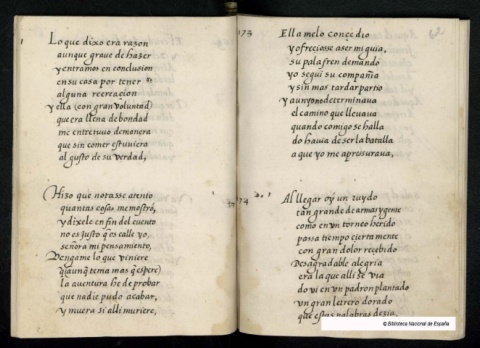 Lo que dixo era razon
aunque graue de haser
y entramos en conclusion
en su casa por tener
alguna recreaçion
y ella (con gran voluntad)
que era llena de bondad
me entretuuo de manera
que sin comer estuuiera
al gusto de su verdad,
Hiso que notasse atento
quantas cosas me mostró,
y dixele en fin del cuento
no es justo q̃ os calle yo,
señora mi pensamiento,
Vengame lo que viniere
q̃ aunq̃ tema mas q̃ espere)
la auentura he de probar
que nadie pudo acabar,
y muera si alli muriere,
173
Ella me lo conçedio
y ofreciosse a ser mi guia,
su palafren demando
yo segui su compañia
y sin mas tardar partio
y aun yo no determinaua
el camino que lleuaua
quando comigo se halla
do hauia de ser la batalla
a que yo me apressuraua,
174
Al llegar oy un ruydo
tan grande de armas y gente
como en vn torneo herido
passa tiempo ciertamente
con gran dolor recebido
Desagradable alegria
era la que alli se via
do vi en vn padron plantado
vn gran letrero dorado
que estas palabras desia,
© Biblioteca Nacional de España